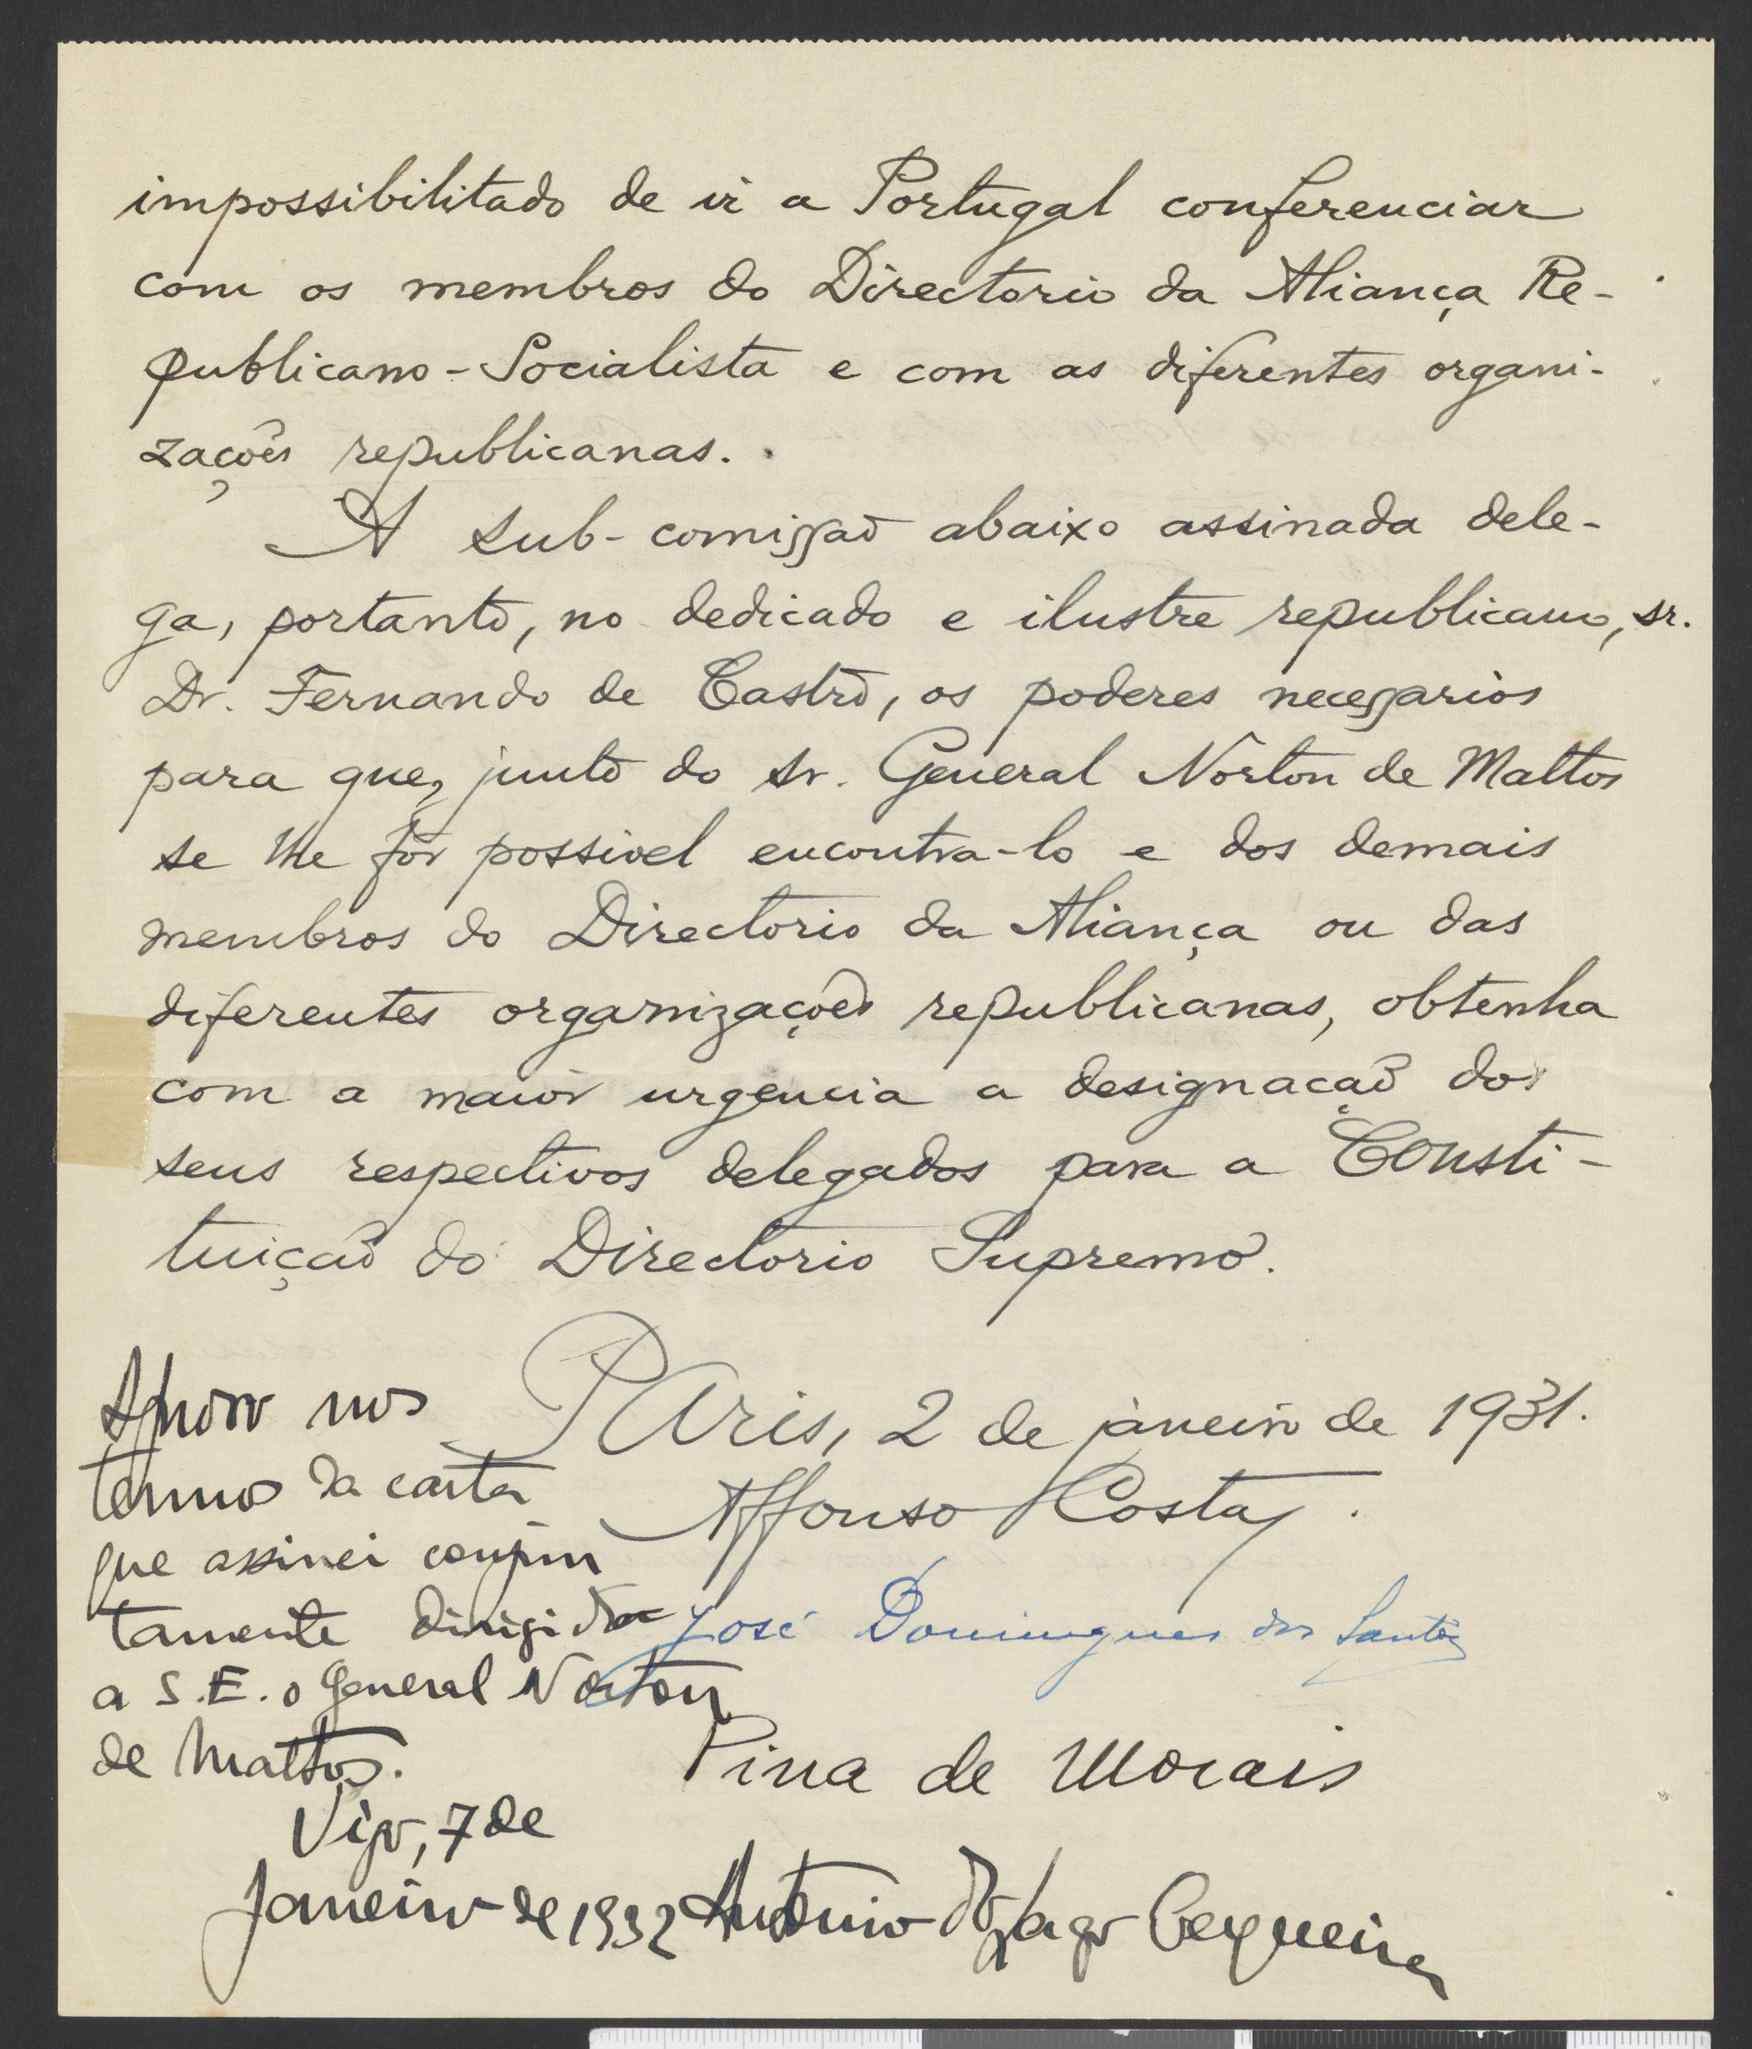 impossibilitado de ir a Portugal conferenciar
com os membros do Directorio da Aliança Re-
publicano-Socialista e com as diferentes organi-
zações republicanas.
A sub-comissão abaixo assinada dele-
ga, portanto, no dedicado e ilustre republicano, sr.
Dr. Fernando de Castro, os poderes necessarios
para que, junto do sr. General Norton de Mattos
se lhe fôr possivel encontra-lo e dos demais
membros do Directorio da Aliança ou das
diferentes organizações republicanas, obtenha
com a maior urgencia a designação dos
seus respectivos delegados para a Consti-
tuição do Directorio Supremo.
Paris, 2 de janeiro de 1931.
Affonso Costa.
José Domingues dos Santos
Pina de Morais
Aprovo nos
termos da carta
que assinei conjun
tamente dirigida
a S.E. o General Norton
de Mattos.
Vigo, 7 de
Janeiro de 1932 Antonio do Lago Cerqueira